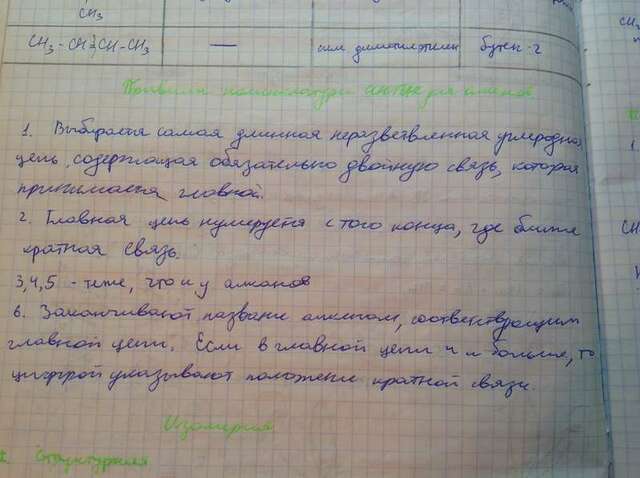 CH3
CH3 - CH = CH - CH3 — сим диметилэтилен бутен-2
Правила номенклатуры ИЮПАК для алкенов
1. Выбирается самая длинная неразветвленная углеродная
цепь, содержащая обязательно двойную связь, которая
принимается главной.
2. Главная цепь нумеруется с того конца, где ближе
кратная связь.
3,4,5 - теже, что и у алканов
6. Заканчивают название алкеном, соответствующим
главной цепи. Если в главной цепи 4 и больше, то
цифрой указывают положение кратной связи.
Изомерия
1. Структурная